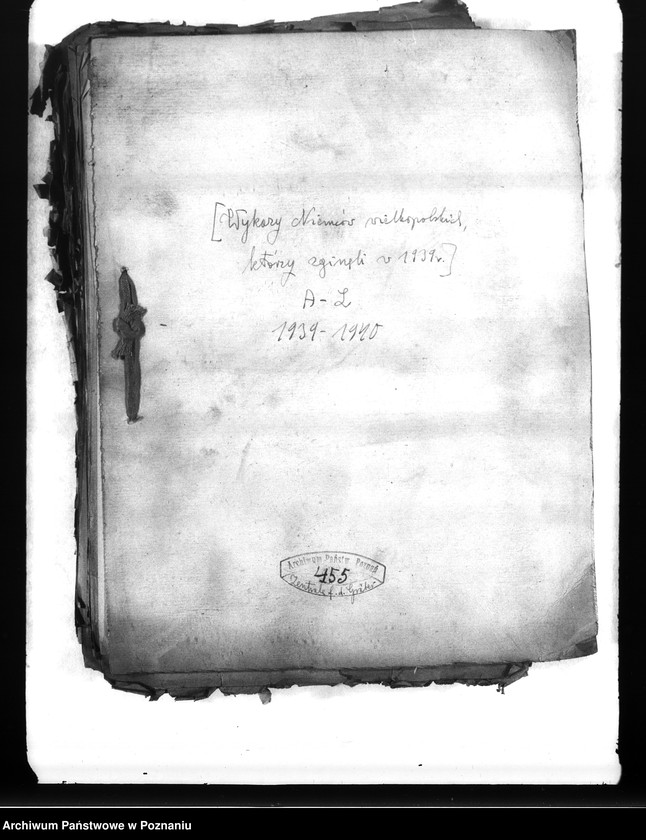 [Wykazy Niemców wielkopolskich,
którzy zginęli w 1939 r.]
A - Ł
1939 - 1940
Archiwum Państw. Poznań
455
Zentrale f. d. Gräber
Archiwum Państwowe w Poznaniu